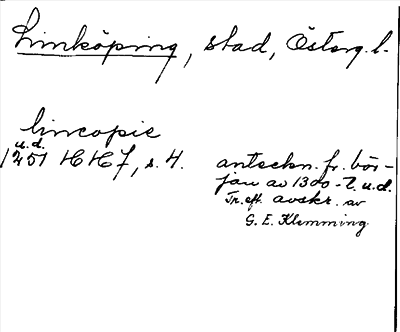 Linköping, stad, Österg. l.
lincopie
u.d.
1251 HH 7, s. 4. anteckn. fr. bör-
jan av 1300-t. u.d.
Tr. eft. avskr. av
G. E. Klemming